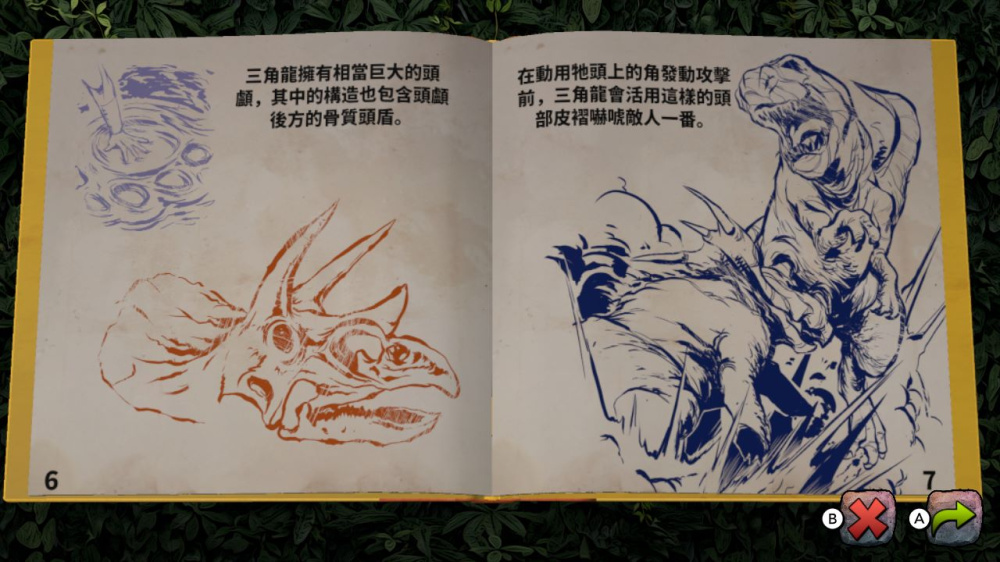 三角龍擁有相當巨大的頭
顱，其中的構造也包含頭顱
後方的骨質頭盾。
在動用牠頭上的角發動攻擊
前，三角龍會活用這樣的頭
部皮褶嚇唬敵人一番。
6
7
B
A